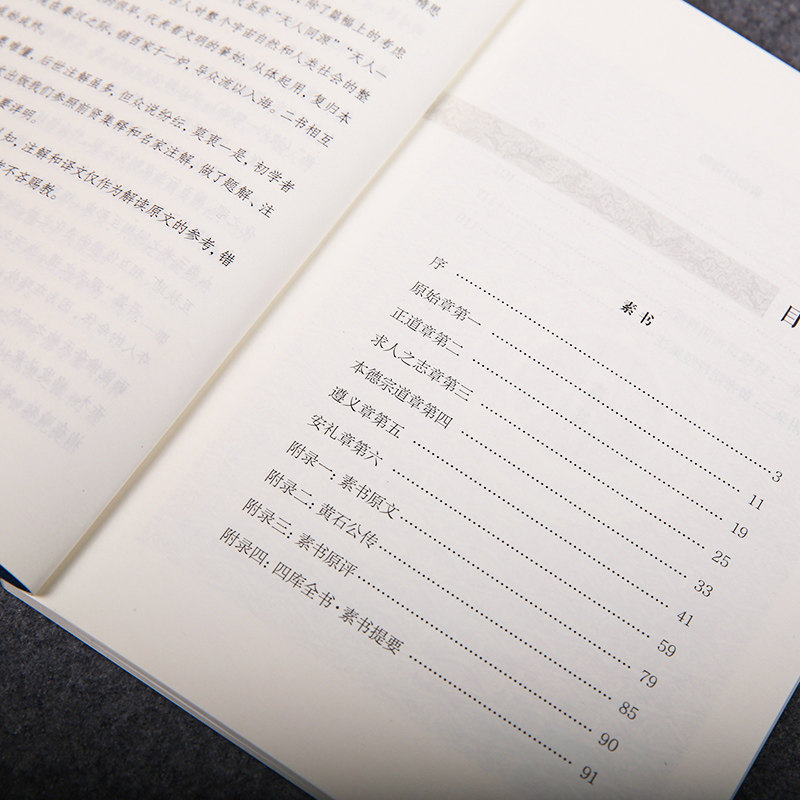 精思
除了篇幅上的考虑
“天人同源”“天人一
古人对整个宇宙自然和人类社会的整
的很早，代表着文明的肇始，从体起用，复归本
在秦汉之际，镕百家于一炉，导众流以入海。二书相互
后世注解虽多，但众说纷纭，莫衷一是，初学者
出版我们参照前贤集释和名家注解，做了题解、注
要详明。
知，注解和译文仅作为解读原文的参考，错
不吝赐教。
目
素书
序 3
原始章第一 11
正道章第二 19
求人之志章第三 25
本德宗道章第四 33
遵义章第五 41
安礼章第六 59
附录一：素书原文 79
附录二：黄石公传 85
附录三：素书原评 90
附录四：四库全书·素书提要 91